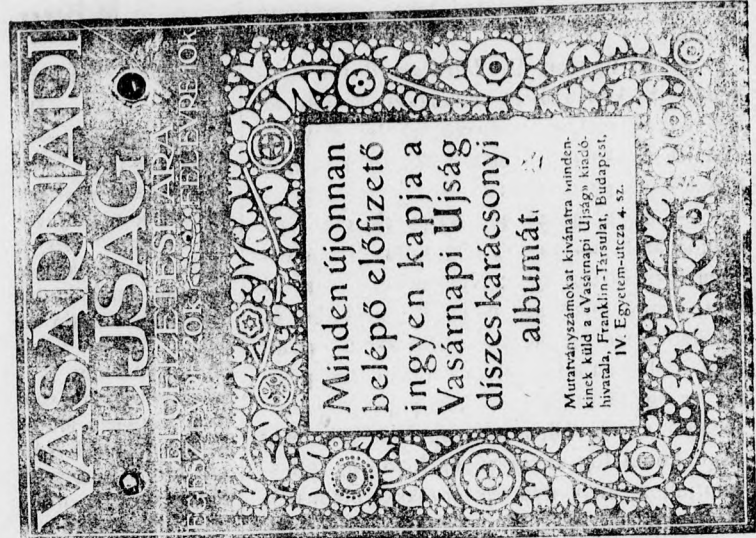 VASÁRNAPI
UJSÁG
ELŐFIZETÉSI ÁRA
EGÉSZ ÉVRE 20 K FÉLÉVRE 10 K
Minden újonnan
belépő előfizető
ingyen kapja a
Vasárnapi Ujság
díszes karácsonyi
albumát.
Mutatványszámokat kivánatra minden-
kinek küld a «Vasárnapi Ujság» kiadó-
hivatala, Franklin-Társulat, Budapest,
IV. Egyetem-utcza 4. sz.